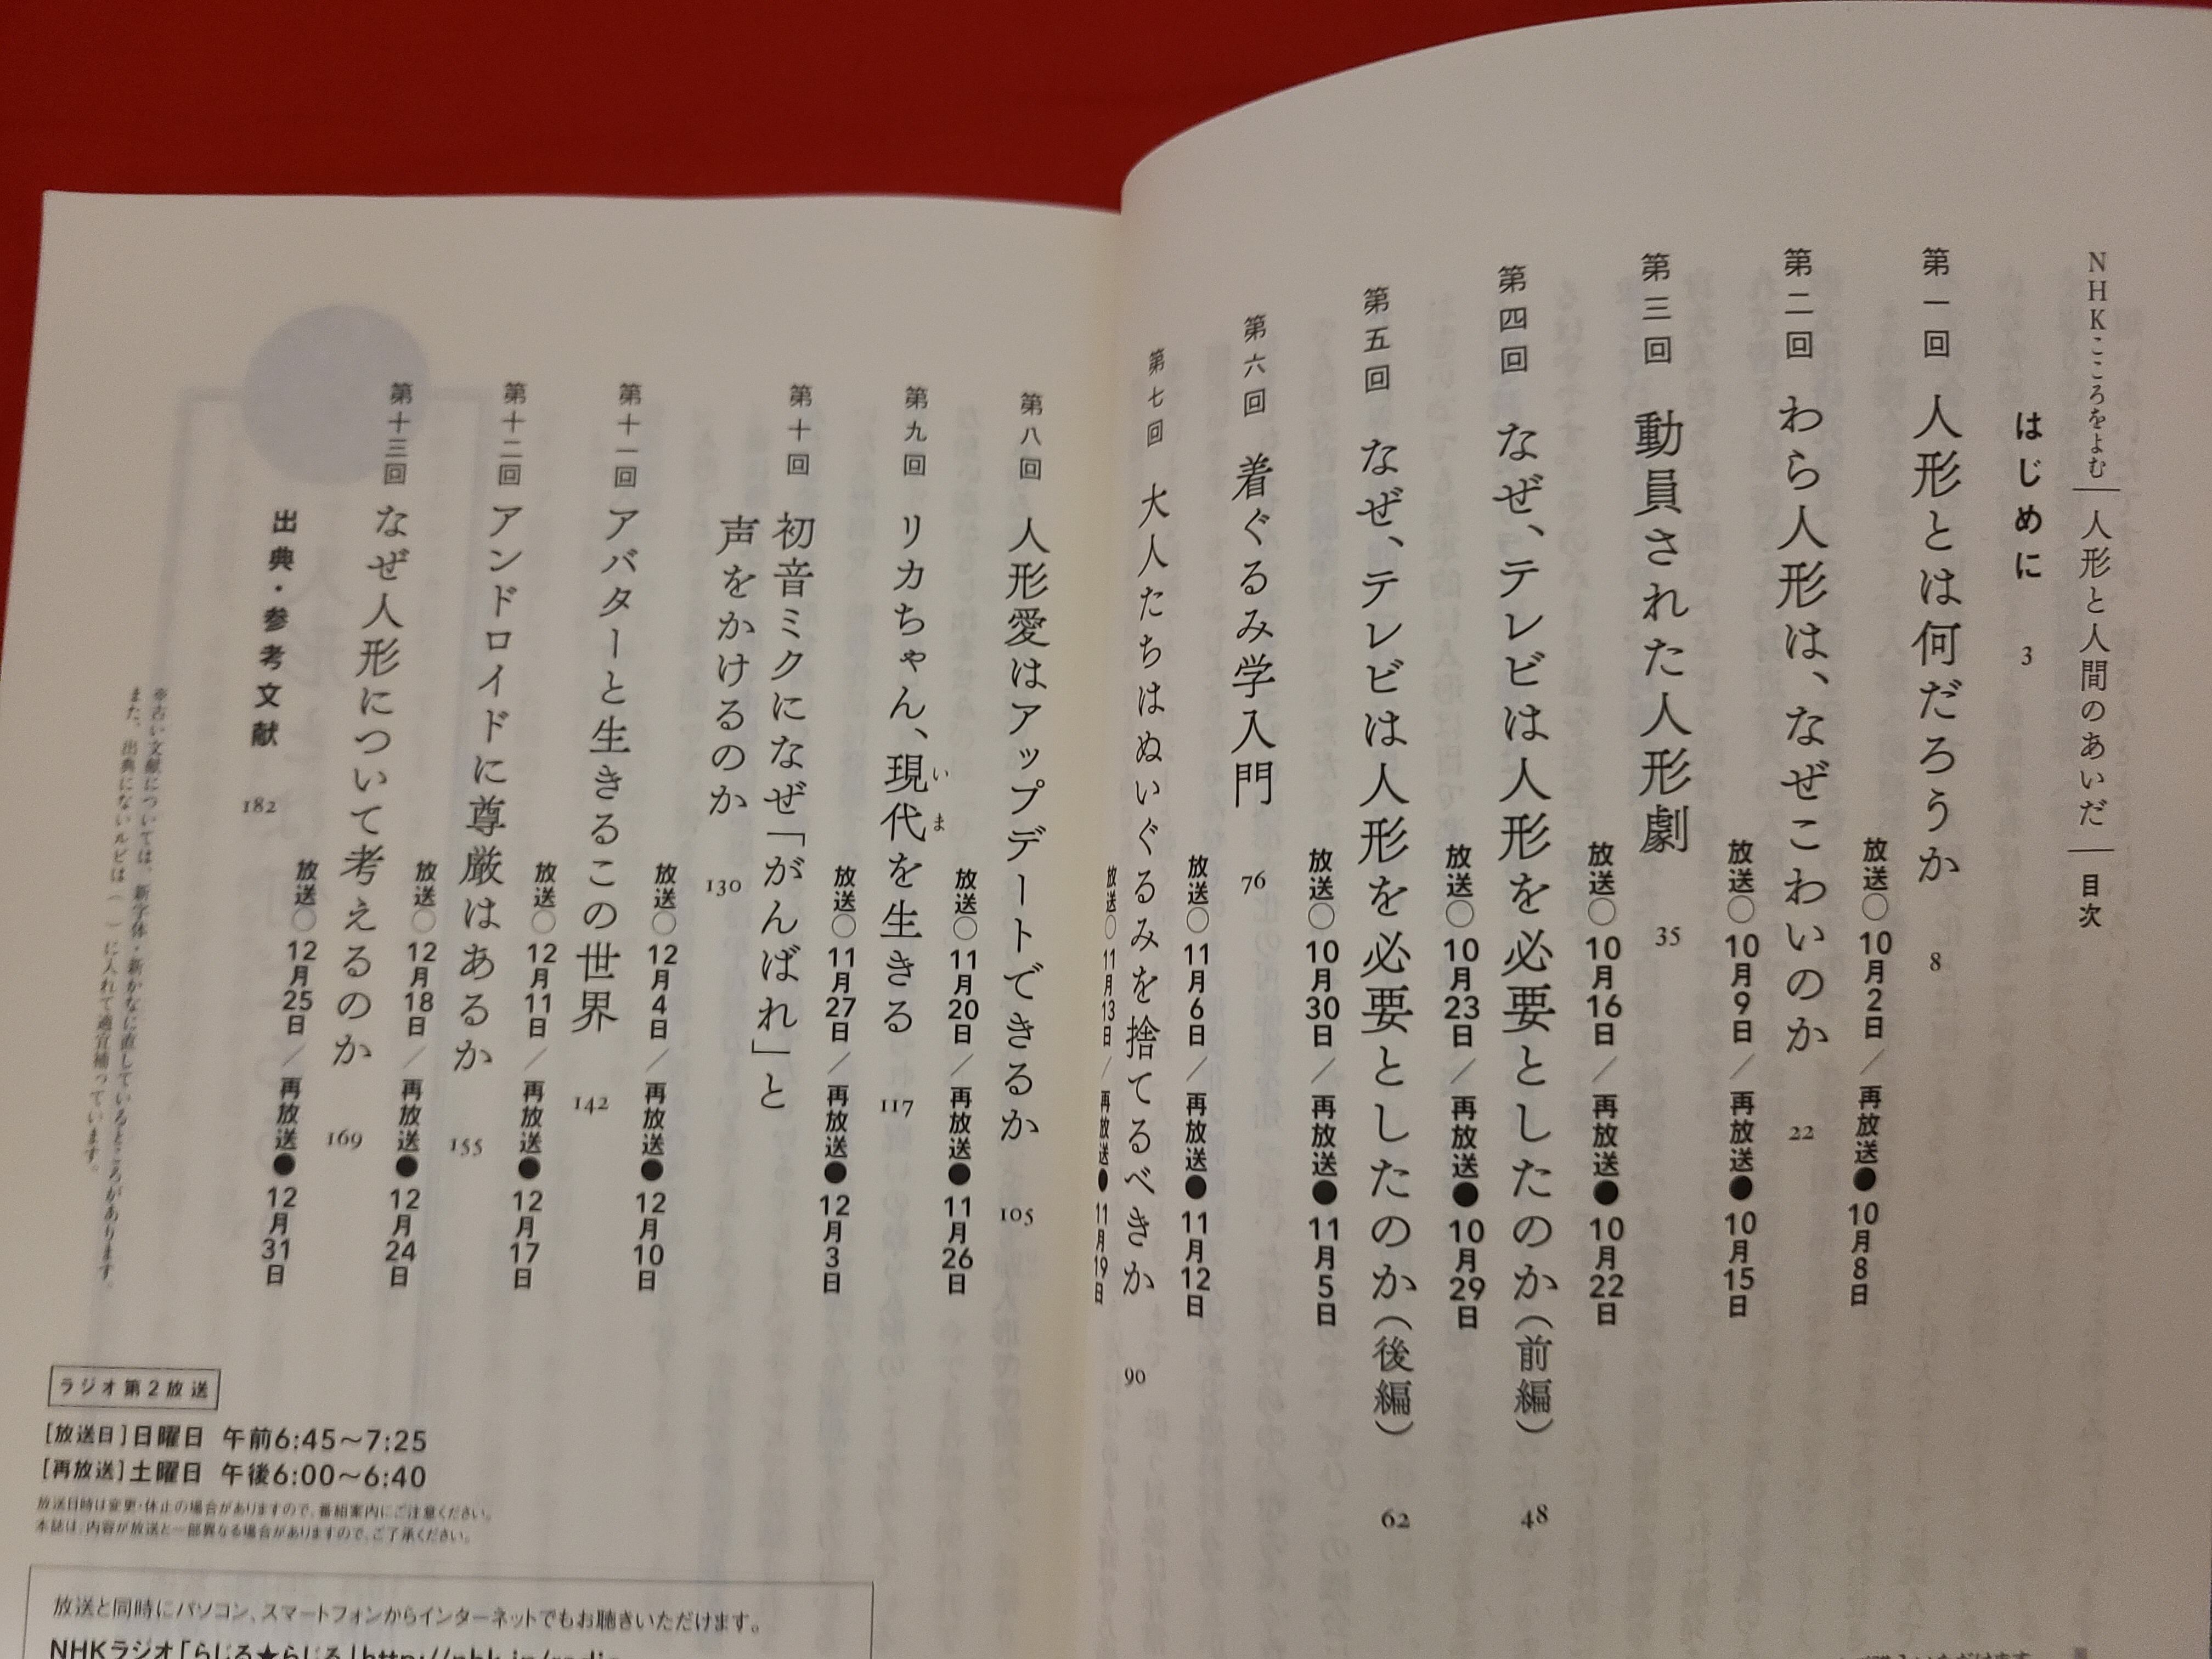 NHKこころをよむ―人形と人間のあいだ―目次
はじめに 3
第一回 人形とは何だろうか 8
放送○10月2日/再放送●10月8日
第二回 わら人形は、なぜこわいのか 22
放送○10月9日/再放送●10月15日
第三回 動員された人形劇 35
放送○10月16日/再放送●10月22日
第四回 なぜ、テレビは人形を必要としたのか(前編) 48
放送○10月23日/再放送●10月29日
第五回 なぜ、テレビは人形を必要としたのか(後編) 62
放送○10月30日/再放送●11月5日
第六回 着ぐるみ学入門 76
放送○11月6日/再放送●11月12日
第七回 大人たちはぬいぐるみを捨てるべきか 90
放送○11月13日/再放送●11月19日
第八回 人形愛はアップデートできるか 105
放送○11月20日/再放送●11月26日
第九回 リカちゃん、現代いまを生きる 117
放送○11月27日/再放送●12月3日
第十回 初音ミクになぜ「がんばれ」と
声をかけるのか 130
放送○12月4日/再放送●12月10日
第十一回 アバターと生きるこの世界 142
放送○12月11日/再放送●12月17日
第十二回 アンドロイドに尊厳はあるか 155
放送○12月18日/再放送●12月24日
第十三回 なぜ人形について考えるのか 169
放送○12月25日/再放送●12月31日
出典・参考文献 182
※古い文献については、新字体・新かなに直しているところがあります。
また、出典にないルビは( )に入れて適宜補っています。
ラジオ第2放送
[放送日]日曜日 午前6:45〜7:25
[再放送]土曜日 午後6:00〜6:40
放送日時は変更・休止の場合がありますので、番組案内にご注意ください。
本誌は、内容が放送と一部異なる場合がありますので、ご了承ください。
放送と同時にパソコン、スマートフォンからインターネットでもお聴きいただけます。
NHKラジオ「らじる★らじる」http://nhk.jp/radio